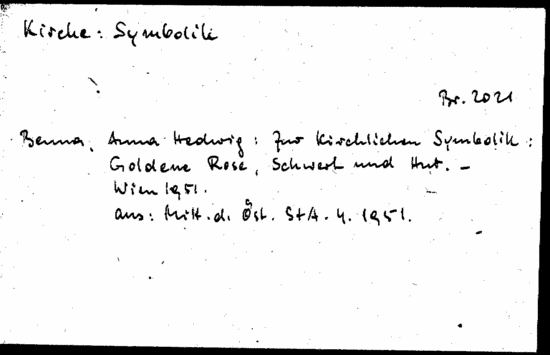 Kirche: Symbolik
Br. 2021
Benna, Anna Hedwig: Zur Kirchlichen Symbolik:
Goldene Rose, Schwert und Hut. –
Wien 1951.
aus: Mitt. d. Öst. StA. 4. 1951.